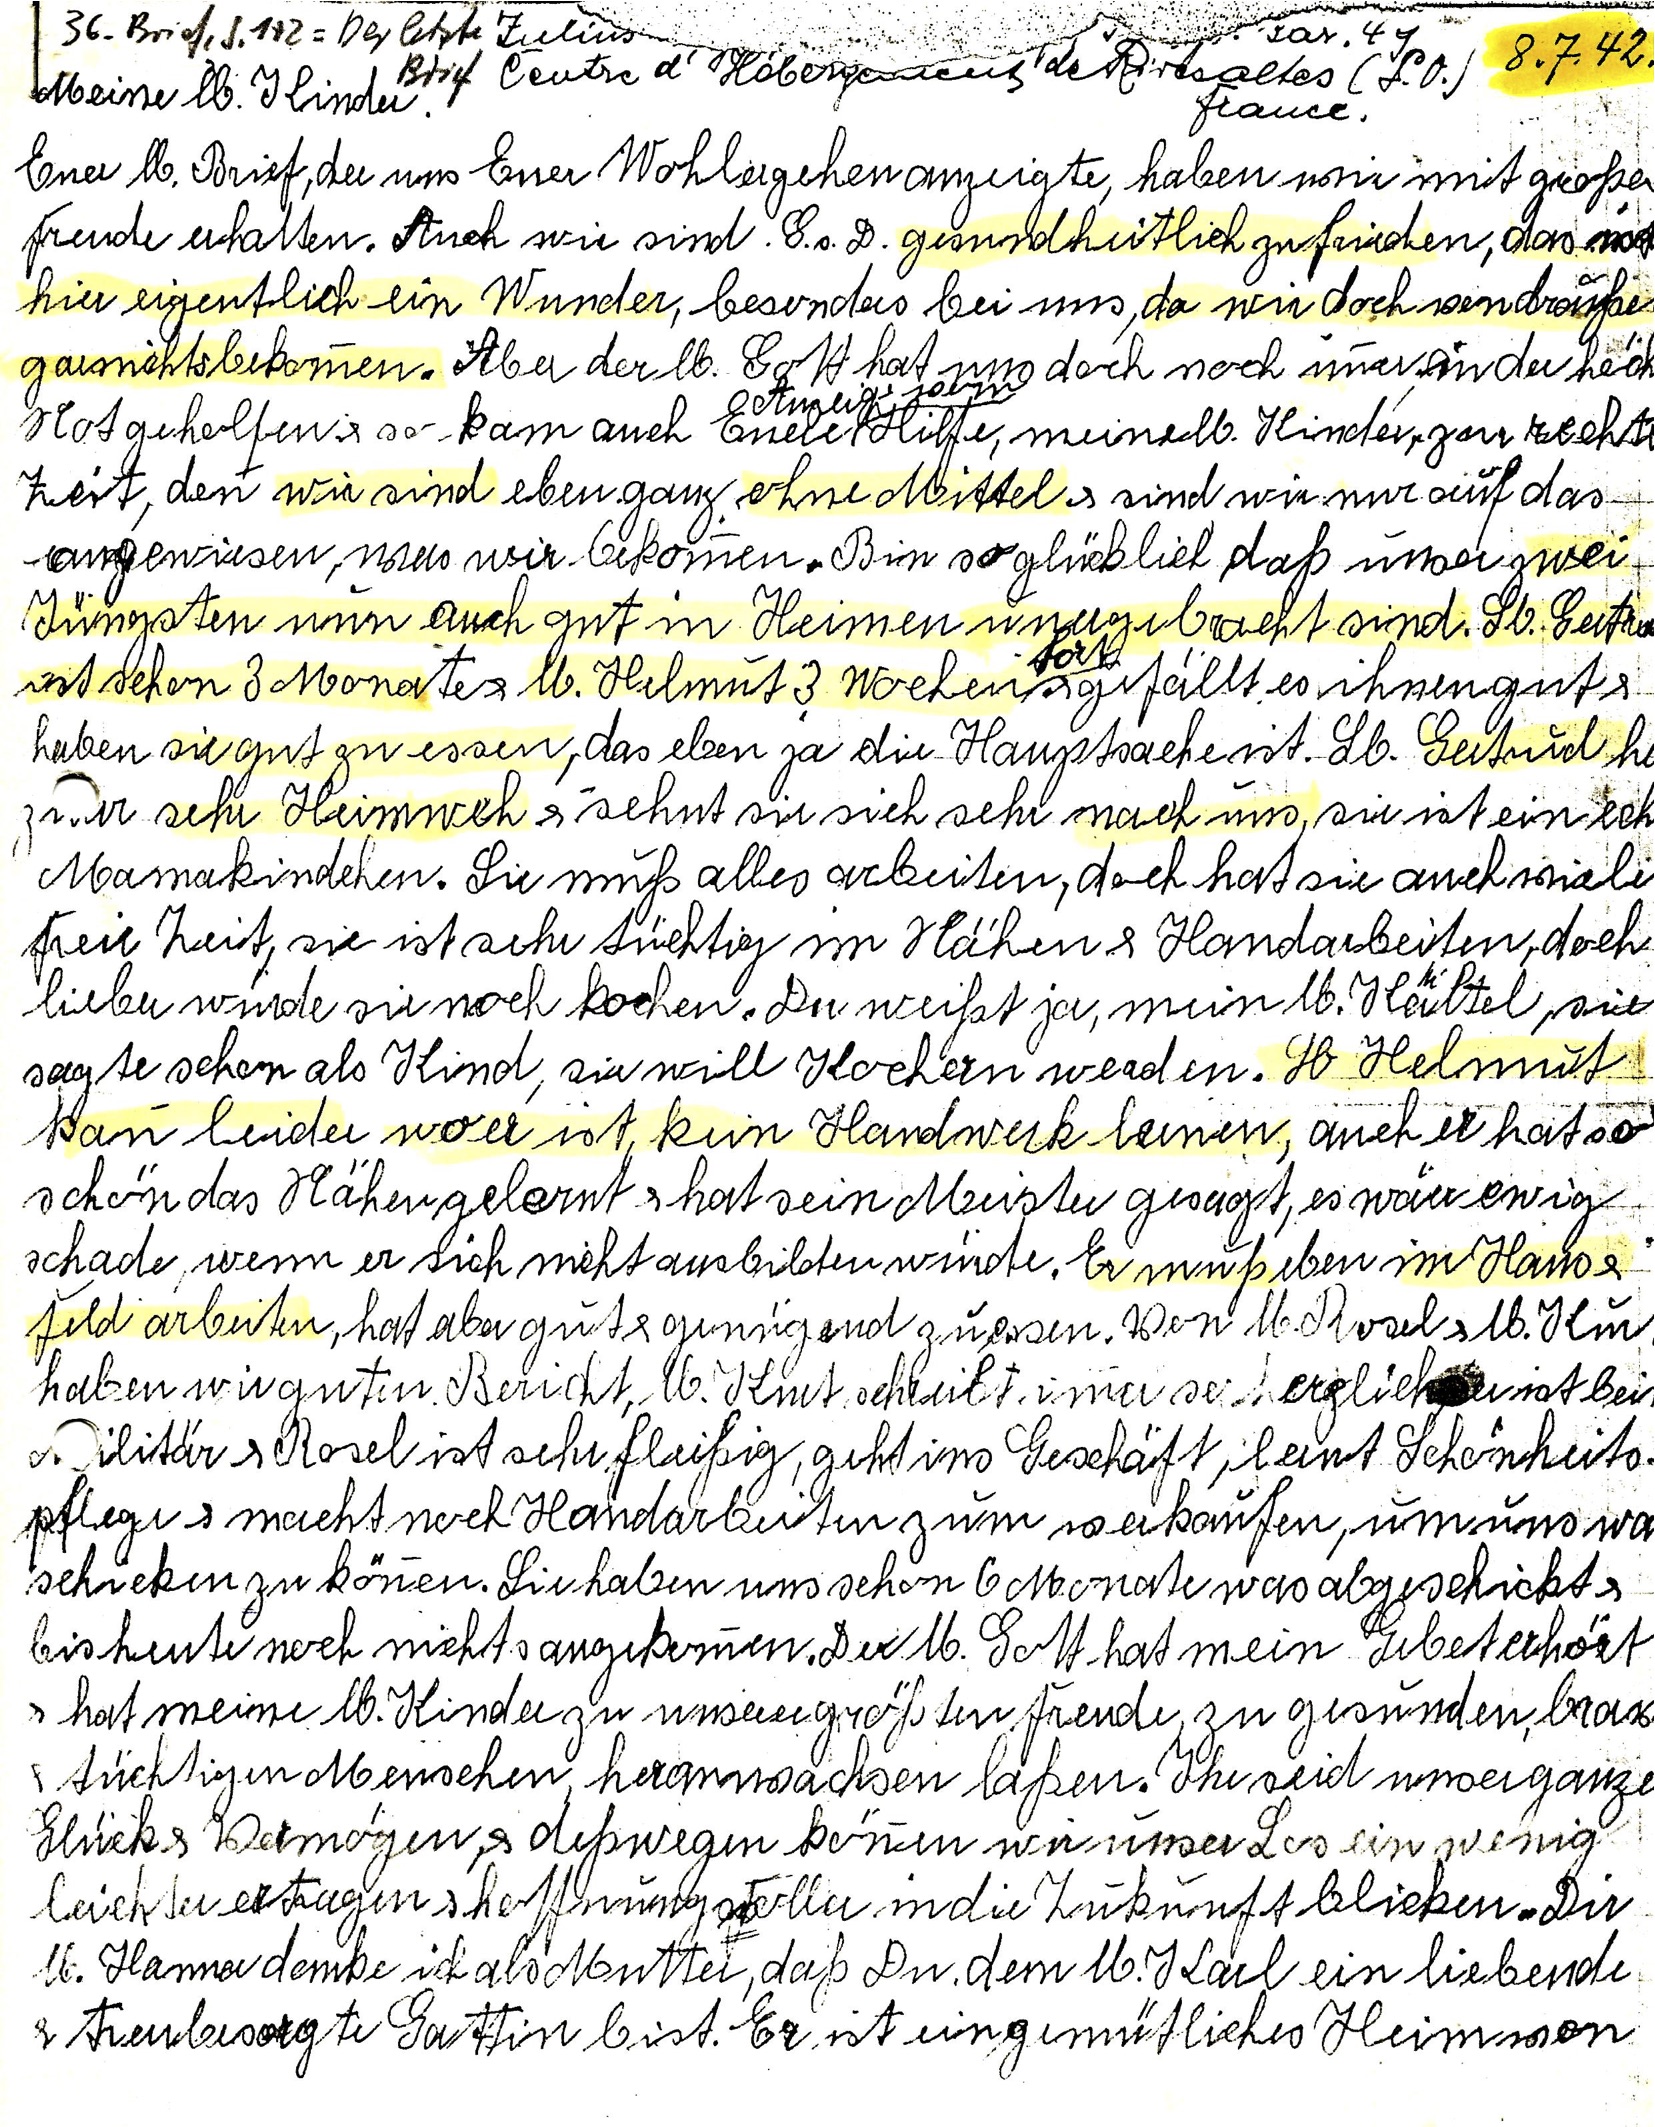 36. Brief, S. 182 = Der letzte Brief
Julius
bar. 47
8.7.42.
Centre d'Hébergement de Rivesaltes (P.O.)
France.
Meine lb. Kinder.
Euer lb. Brief, der uns Euer Wohlergehen anzeigte, haben wir mit großer
Freude erhalten. Auch wir sind G.s.D. gesundheitlich zufrieden, das ist
hier eigentlich ein Wunder, besonders bei uns, da wir doch von drauße
garnichts bekom̄en. Aber der lb. Gott hat uns doch noch im̄er in der höch
Not geholfen & so kam auch Euere Hilfe, meine lb. Kinder, zur recht
Zeit, den̄ wir sind eben ganz ohne Mittel & sind wir nur auf das
angewiesen, was wir bekom̄en. Bin so glücklich daß unser zwei
Jüngsten nun auch gut in Heimen untergebracht sind. Lb. Gertru
ist schon 3 Monate & lb. Helmut 3 Wochen fort & gefällt es ihnen gut &
haben sie gut zu essen, das eben ja die Hauptsache ist. Lb. Gertrud ha
zwar sehr Heimweh & sehnt sie sich sehr nach uns, sie ist ein ech
Mamakindchen. Sie muß alles arbeiten, doch hat sie auch viele
freie Zeit, sie ist sehr tüchtig im Nähen & Handarbeiten, doch
lieber würde sie noch kochen. Du weißt ja, mein lb. sie
sagte schon als Kind, sie will Köchin werden. Lb Helmut
kan̄ leider wo er ist, kein Handwerk lernen, auch er hat so
schön das Nähen gelernt & hat sein Meister gesagt, es wäre ewig
schade, wenn er sich nicht ausbilden würde. Er muß eben im Haus &
Feld arbeiten, hat aber gut & genügend zu essen. Von lb. Rosel & lb. Kur
haben wir guten Bericht, lb. Kurt schreibt im̄er so herzlich er ist bei
Militär & Rosel ist sehr fleißig, geht ins Geschäft, lernt Schönheits-
pflege & macht noch Handarbeiten zum verkaufen, um uns wa
schicken zu kön̄en. Sie haben uns schon 6 Monate was abgeschickt &
bis heute noch nichts angekom̄en. Der lb. Gott hat mein Gebet erhört
& hat meine lb. Kinder zu unserer größten Freude, zu gesunden, brav
& tüchtigen Menschen, heranwachsen laßen. Ihr seid unser ganze
Glück & Vermögen, & deßwegen kön̄en wir unser Los ein wenig
leichter ertragen & hoffnungsvoller in die Zukunft blicken. Dir
lb. Hanna danke ich als Mutter, daß Du dem lb. Karl ein liebende
& treubesorgte Gattin bist. Er ist ein gemütliches Heim von